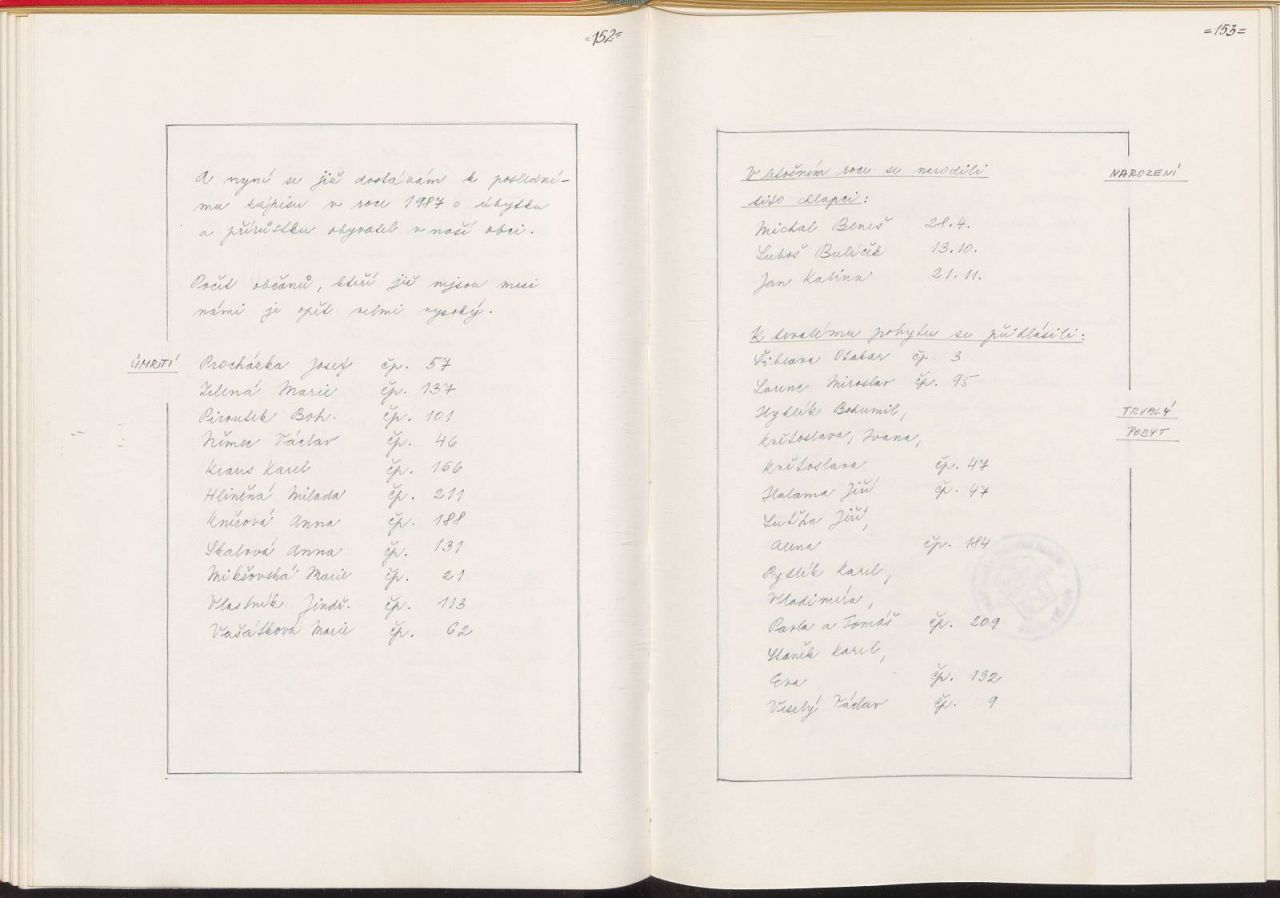 =152=
A nyní se již dostávám k poslední-
mu zápisu v roce 1987 o úbytku
a přírůstku obyvatel v naší obci.
Počet občanů, kteří již nejsou mezi
námi je opět velmi vysoký.
ÚMRTÍ
Procházka Josef čp. 57
Zelená Marie čp. 137
Piroutek Boh. čp. 101
Němec Václav čp. 46
Kraus Karel čp. 166
Hliněná Milada čp. 211
Knížová Anna čp. 188
Skalová Anna čp. 131
Mikšovská Marie čp. 21
Vlastník Jindř. čp. 113
Vašátková Marie čp. 62
=153=
V letošním roce se narodili
tito chlapci:
NAROZENÍ
Michal Beneš 28.4.
Luboš Bulíček 13.10.
Jan Kalina 21.11.
K trvalému pobytu se přihlásili:
TRVALÝ
POBYT
Otakar čp. 3
Lorenc Miroslav čp. 95
Bohumil,
Květoslava, Ivana,
Květoslava čp. 47
Halama Jiří čp. 47
Jiří,
Alena čp. 184
Pytlík Karel,
Vladimíra,
Pavla a Tomáš čp. 209
Staněk Karel,
Eva čp. 132
Veselý Václav čp. 9